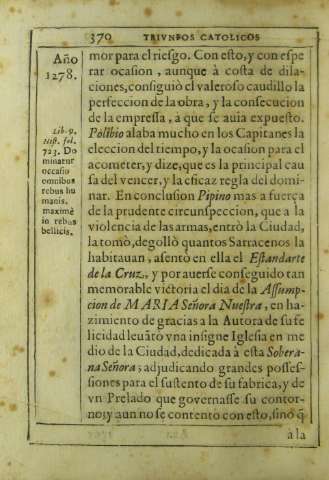 370 TRIVNFOS CATOLICOS
Año
1278.
Lib. 9.
hist. fol.
723. Do
minatur
occasio
omnibus
rebus hu
manis,
maximè
in rebus
bellicis.
mor para el riesgo. Con esto, y con espe
rar ocasion, aunque à costa de dila-
ciones, consiguiò el valeroso caudillo la
perfeccion de la obra, y la consecucion
de la empressa, a que se auia expuesto.
Polibio alaba mucho en los Capitanes la
eleccion del tiempo, y la ocasion para el
acometer, y dize, que es la principal cau
sa del vencer, y la eficaz regla del domi-
nar. En conclusion Pipino mas a fuerça
de la prudente circunspeccion, que a la
violencia de las armas, entrò la Ciudad,
la tomò, degollò quantos Sarracenos la
habitauan, asentò en ella el Estandarte
de la Cruz, y por auerse conseguido tan
memorable victoria el dia de la Assump-
cion de MARIA Señora Nuestra, en ha-
zimiento de gracias a la Autora de su fe
licidad leuãtò vna insigne Iglesia en me
dio de la Ciudad, dedicada à esta Sobera-
na Señora; adjudicando grandes posses-
siones para el sustento de su fabrica, y de
vn Prelado que governasse su contor-
no; y aun no se contento con esto, sinò q̃
a la